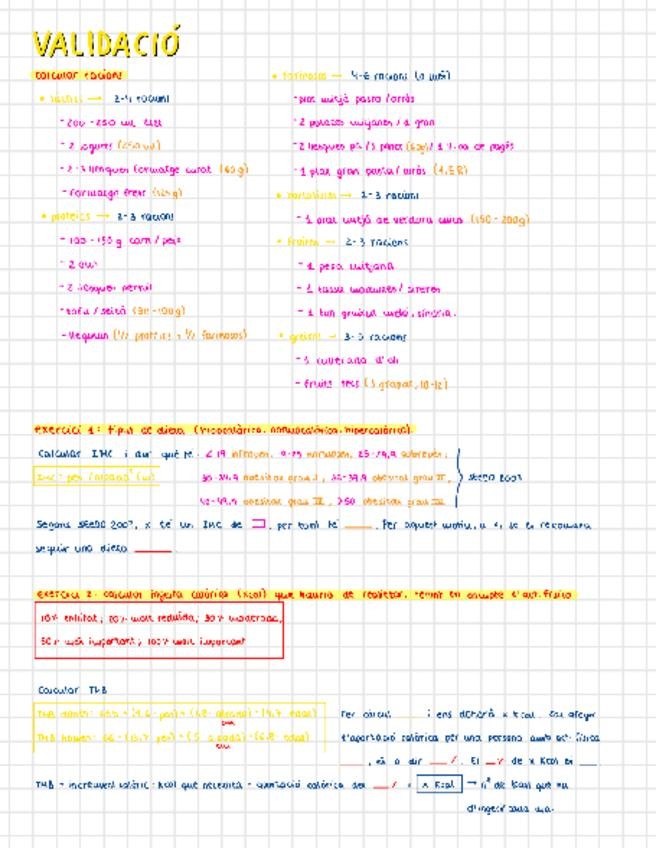 VALIDACIÓ
calcular racions
• làctics → 2-4 racions
- 200-250 mL llet
- 2 iogurts (250 ml)
- 2-3 llenques formatge curat (60g)
- formatge fresc (125g)
• proteics → 2-3 racions
- 100-150g carn / peix
- 2 ous
- 2 llenques pernil
- tofu / seità
- llegums (1/2 proteics + 1/2 farinosos)
• farinosos → 4-6 racions
- plat mitjà pasta / arròs
- 2 patates mitjanes / 1 gran
- 2 llesques pa / de pagès
- 1 plat gran pasta / arròs (4,5 R)
• hortalisses → 2-3 racions
- 1 plat mitjà de verdura cuita (150-200g)
• fruites → 2-3 racions
- 1 peça mitjana
- 1 tassa maduixes / cireres
- 1 tall gruixut meló, síndria.
• greixos → 3-5 racions
- 1 cullerada d'oli
- fruits secs
exercici 1: tipus de dieta (hipocalòrica, normocalòrica, hipercalòrica).
Calcular IMC i dir què té:
obesitat grau I, obesitat grau II,
40-49,9 obesitat grau III, >50 obesitat grau
SEEDO 2007
Segons SEEDO 2007, x té un IMC de , per tant té . Per aquest motiu, a x se li recomana
seguir una dieta
exercici 2: calcular ingesta calòrica (Kcal) que hauria de realitzar, tenint en compte l'act. física
10% enllitat; 20% molt reduïda; 30% moderada,
50% molt important; 100% molt important
Calcular TMB
TMB
TMB homes: 66 + (13,7 · pes) + (5 · alçada) - (6,8 · edat)
cm
Per càlcul i ens donarà x kcal. Cal afegir
l'aportació calòrica per una persona amb act. física
, és a dir %. El % de x Kcal és
TMB + increment calòric: Kcal que necessita x Kcal → nº de Kcal que ha
d'ingerir cada dia.